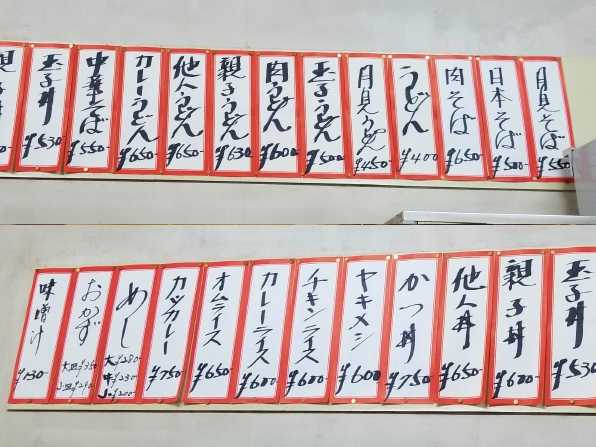 月見そば ¥550-
日本そば ¥500-
肉そば ¥650-
うどん ¥400
月見うどん ¥450
玉子うどん ¥500
肉うどん ¥600
親子うどん ¥630
他人うどん ¥650-
カレーうどん ¥650-
中華そば ¥550-
玉子丼 ¥530
親
玉子丼 ¥530
親子丼 ¥600-
他人丼 ¥650-
かつ丼 ¥750
ヤキメシ ¥600
チキンライス ¥600-
カレーライス ¥600
オムライス ¥650
カツカレー ¥750
めし 大¥280- 中¥230 小¥200
おかず 大皿¥350 小皿¥290
味噌汁 ¥130-